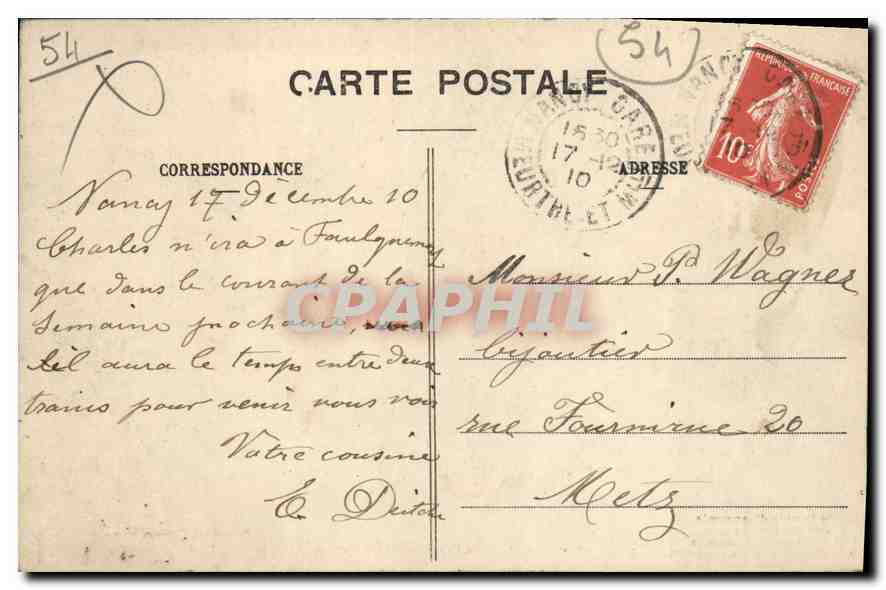 54
54
CARTE POSTALE
NANCY GARE
15 30
17 -12
10
MEURTHE-ET-M
NANCY GARE
REPUBLIQUE FRANÇAISE
10c
POSTES
CORRESPONDANCE
ADRESSE
Nancy 17 décembre 10
Charles n'ira à Faulquemont
que dans le courant de la
semaine prochaine,
il aura le temps entre deux
trains pour venir vous voir
Votre cousine
E.
Monsieur P. Wagner
bijoutier
rue Fournirue 20
Metz
CPAPHIL